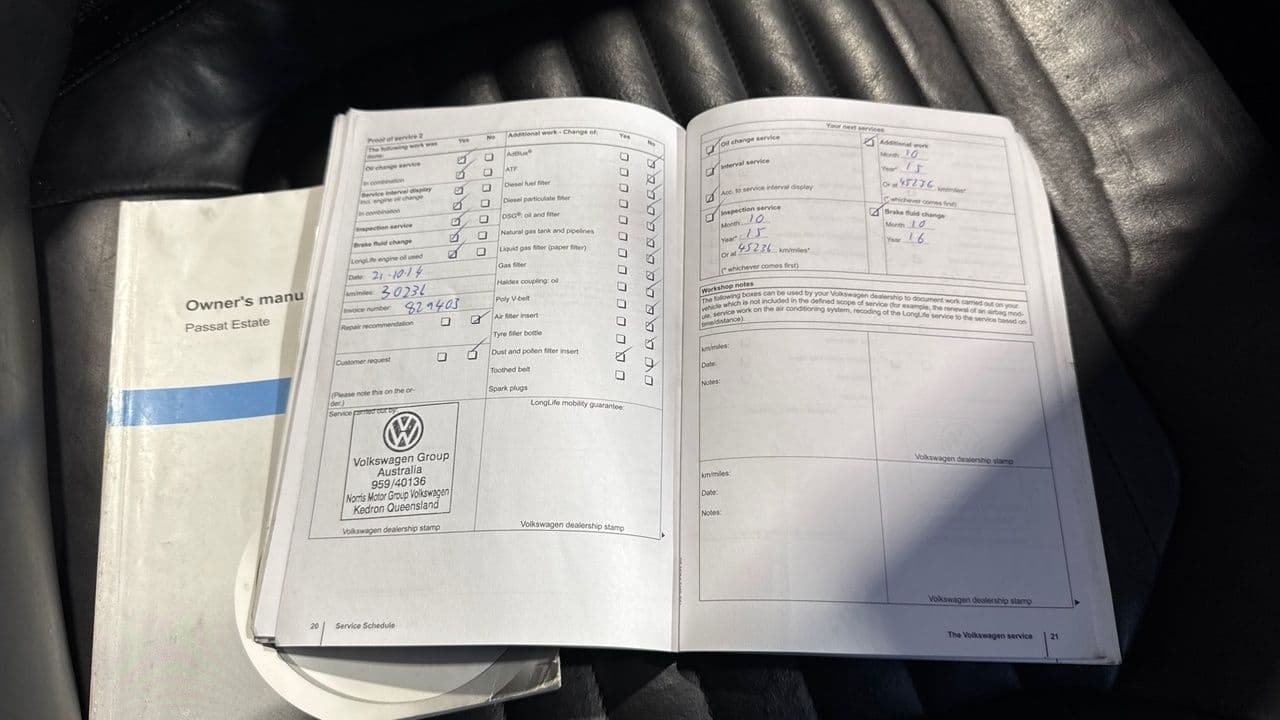 Owner's manu
Passat Estate
Proof of service 2
The following work was done:
Yes
No
Oil change service
In combination
Service interval display
incl. engine oil change
In combination
Inspection service
Brake fluid change
LongLife engine oil used
Date: 21-10-14
km/miles: 30236
Invoice number: 829403
Repair recommendation
Customer request
(Please note this on the or-
der.)
Service carried out by:
Volkswagen Group
Australia
959/40136
Norris Motor Group Volkswagen
Kedron Queensland
Volkswagen dealership stamp
Additional work - Change of:
Yes
No
AdBlue®
ATF
Diesel fuel filter
Diesel particulate filter
DSG®: oil and filter
Natural gas tank and pipelines
Liquid gas filter (paper filter)
Gas filter
Haldex coupling: oil
Poly V-belt
Air filter insert
Tyre filler bottle
Dust and pollen filter insert
Toothed belt
Spark plugs
LongLife mobility guarantee:
Volkswagen dealership stamp
20 | Service Schedule
Your next services
Oil change service
Interval service
Acc. to service interval display
Inspection service
Month 10
Year* 15
Or at 45236 km/miles*
(* whichever comes first)
Additional work
Month 10
Year* 15
Or at 45236 km/miles*
(* whichever comes first)
Brake fluid change
Month 10
Year 16
Workshop notes
The following boxes can be used by your Volkswagen dealership to document work carried out on your
vehicle which is not included in the defined scope of service (for example, the renewal of an airbag mod-
ule, service work on the air conditioning system, recoding of the LongLife service to the service based on
time/distance).
km/miles:
Date:
Notes:
Volkswagen dealership stamp
km/miles:
Date:
Notes:
Volkswagen dealership stamp
The Volkswagen service | 21